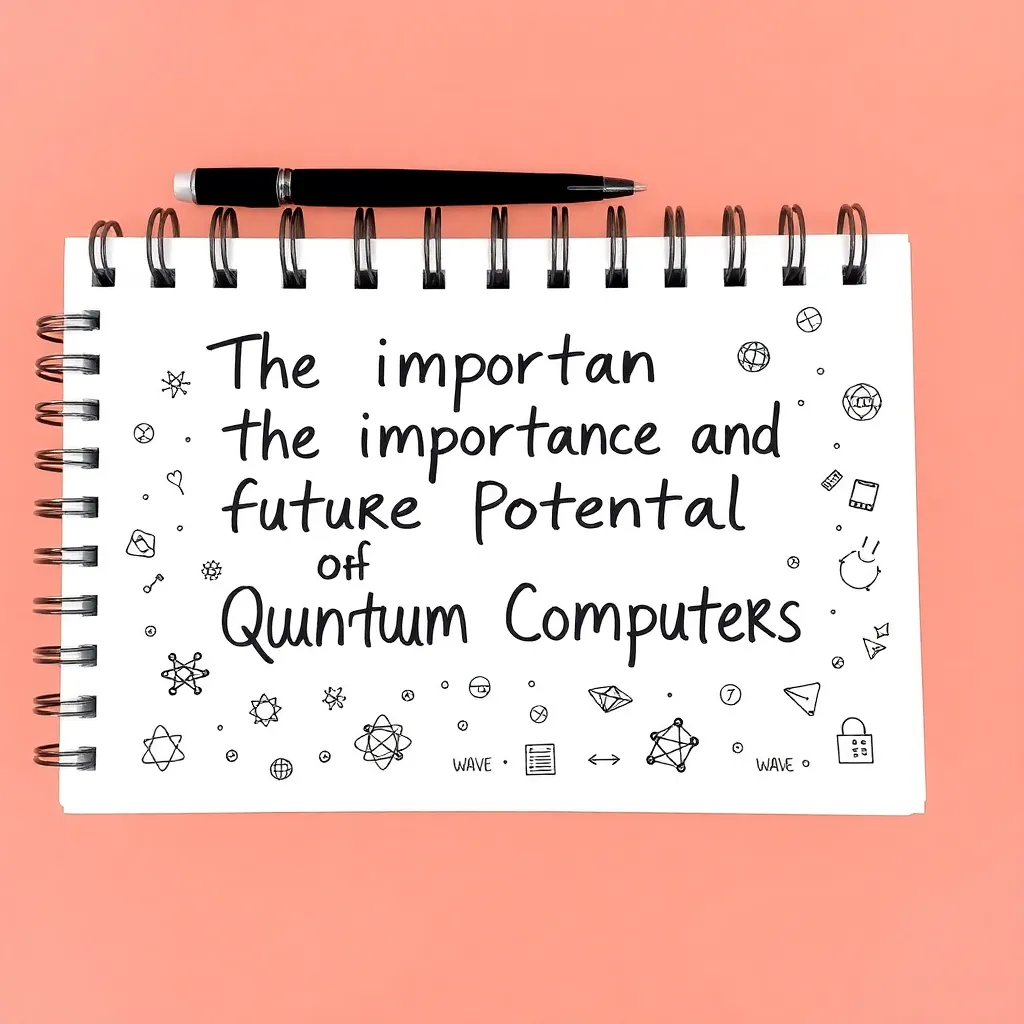 The importan
the importance and
future Potental
off
Quuntuum Computers
WAVE
WAVE
7